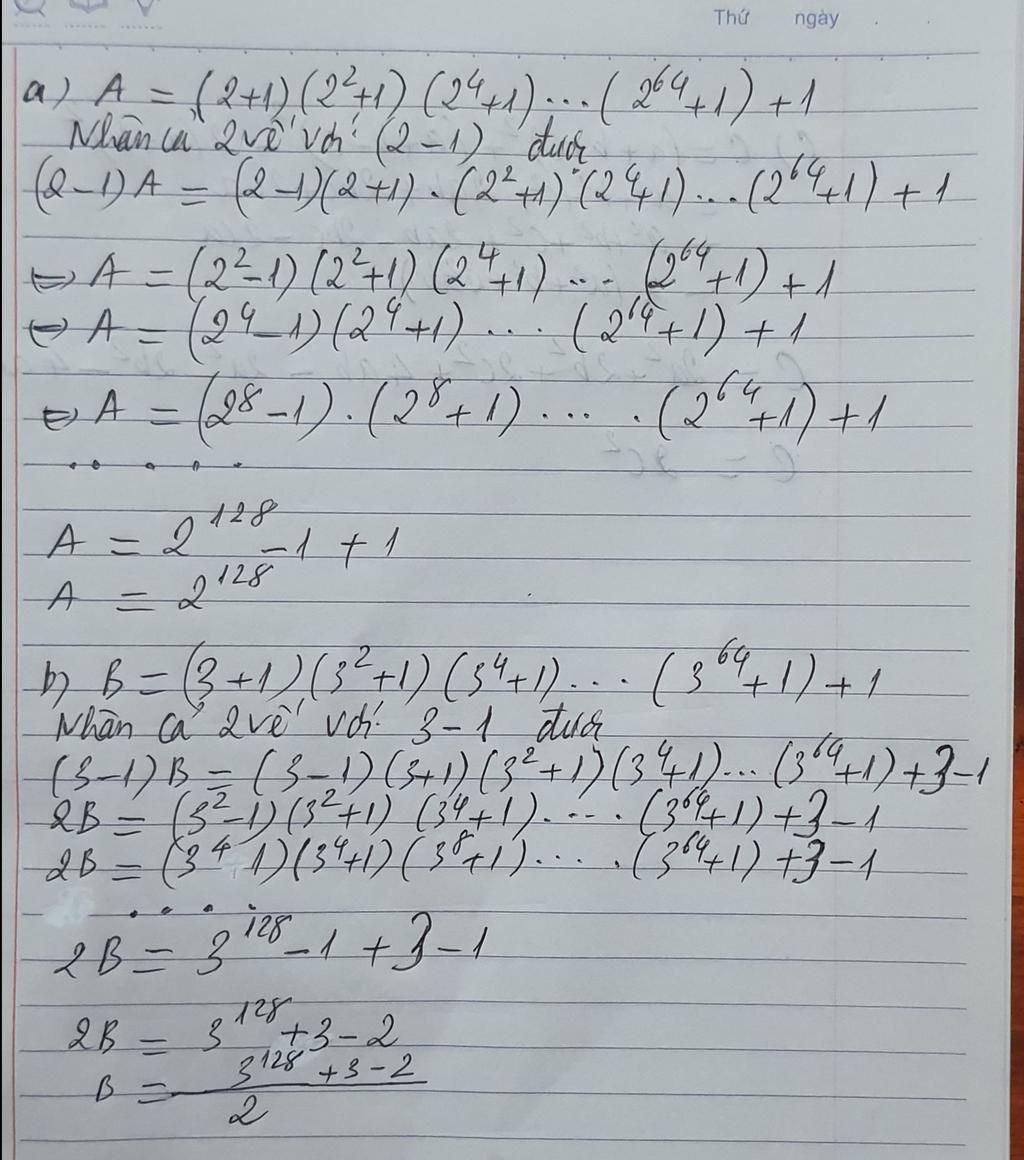 Thứ ngày
a) A = (2+1)(2²+1)(2⁴+1)...(2⁶⁴+1)+1
Nhân cả 2 vế với (2-1) được
(2-1)A = (2-1)(2+1).(2²+1)(2⁴+1)...(2⁶⁴+1)+1
⇔ A = (2²-1)(2²+1)(2⁴+1)...(2⁶⁴+1)+1
⇔ A = (2⁴-1)(2⁴+1)....(2⁶⁴+1)+1
⇔ A = (2⁸-1).(2⁸+1).....(2⁶⁴+1)+1
.....
A = 2¹²⁸-1+1
A = 2¹²⁸
b) B = (3+1)(3²+1)(3⁴+1)...(3⁶⁴+1)+1
Nhân cả 2 vế với 3-1 được
(3-1)B = (3-1)(3+1)(3²+1)(3⁴+1)...(3⁶⁴+1)+3-1
2B = (3²-1)(3²+1)(3⁴+1).....(3⁶⁴+1)+3-1
2B = (3⁴-1)(3⁴+1)(3⁸+1).....(3⁶⁴+1)+3-1
....
2B = 3¹²⁸-1+3-1
2B = 3¹²⁸+3-2
B = (3¹²⁸+3-2)/2